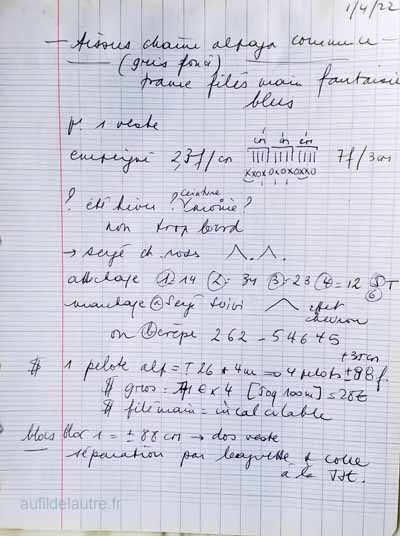 1/4/22
- Tissus chaîne alpaga commune -
(gris foncé)
trame filés main fantaisie
bleus
pr 1 veste
empeigné 2,3f/cn
cn cn cn
7f/3cn
xx0x0x0x0xx0
ceinture
? été hiver ? ?
non trop lourd
→ sergé ch. ross
attachage ① 14 ② 34 ③ 23 ④ = 12 ⑤ T
⑥
marchage ⓐ Sergé suivi effet
chevron
ou ⓑ crêpe 262 - 54645
+35cm
1 pelote alp = T26 * 4m => 4 pelotes ±98f.
gros = € x 4 [50g 100m] = 28€
filé main = incalculable
bloc 1 = ± 88 cm → dos veste
séparation par baguette + colle
à la
aufildelautre.fr